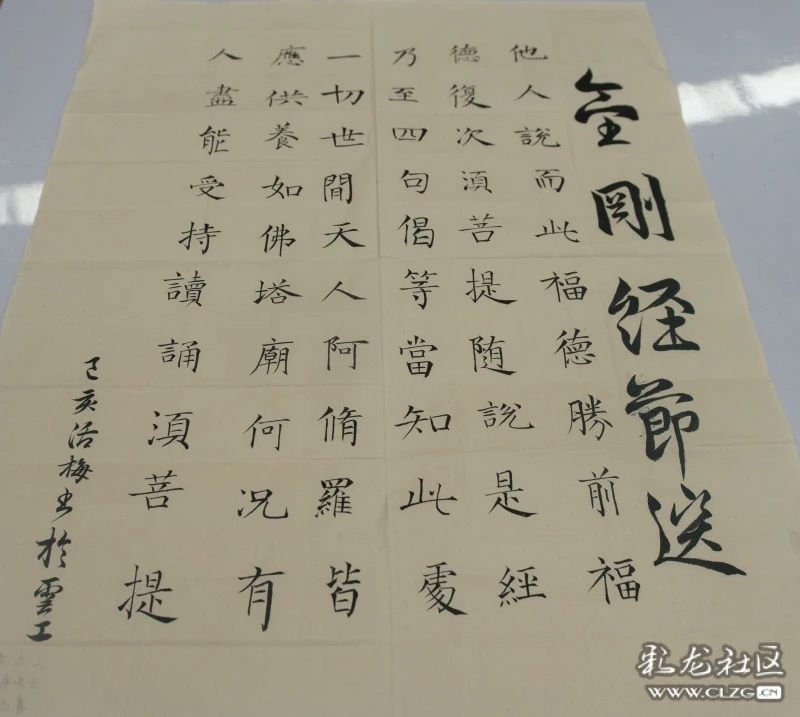 金剛经節选
他人說而此福德勝前福
德復次須菩提随說是經
乃至四句偈等當知此處
一切世間天人阿脩羅皆
應供養如佛塔廟何況有
人盡能受持讀誦須菩提
己亥活梅书於雲工
彩龙社区
WWW.CLZG.CN